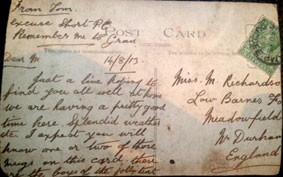 From Tom.
excuse Short P.C.
Remember me to Gran
POST CARD
Dear M. 14/8/13.
Just a line hoping to
find you all well at home
we are having a pretty good
time here. Splendid weather
etc I expect you will
know one or two of those
on this card there
are the boys of the
Miss. M. Richardson
Low Barnes
Meadowfield
Nr Durham
England